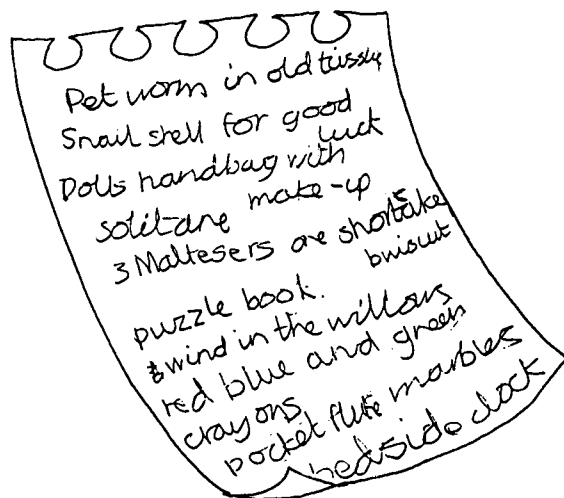 Pet worm in old tissue
Snail shell for good
luck
Dolls handbag with
make-up
solitare
3 Maltesers one shortcake
briscut
puzzle book.
wind in the willows
red blue and green
crayons
pocket flute marbles
bedside clock